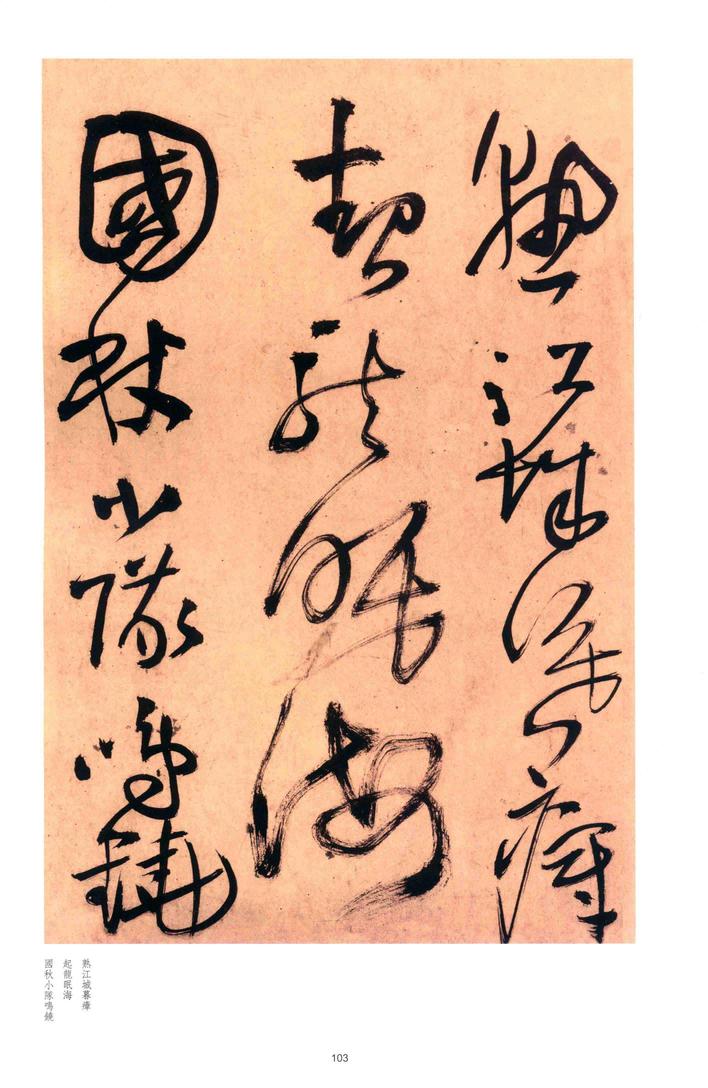 熟江城暮瘴
起龍眠海
國秋小隊鳴鐃
熟江城暮瘴
起龍眠海
國秋小隊鳴鐃
103